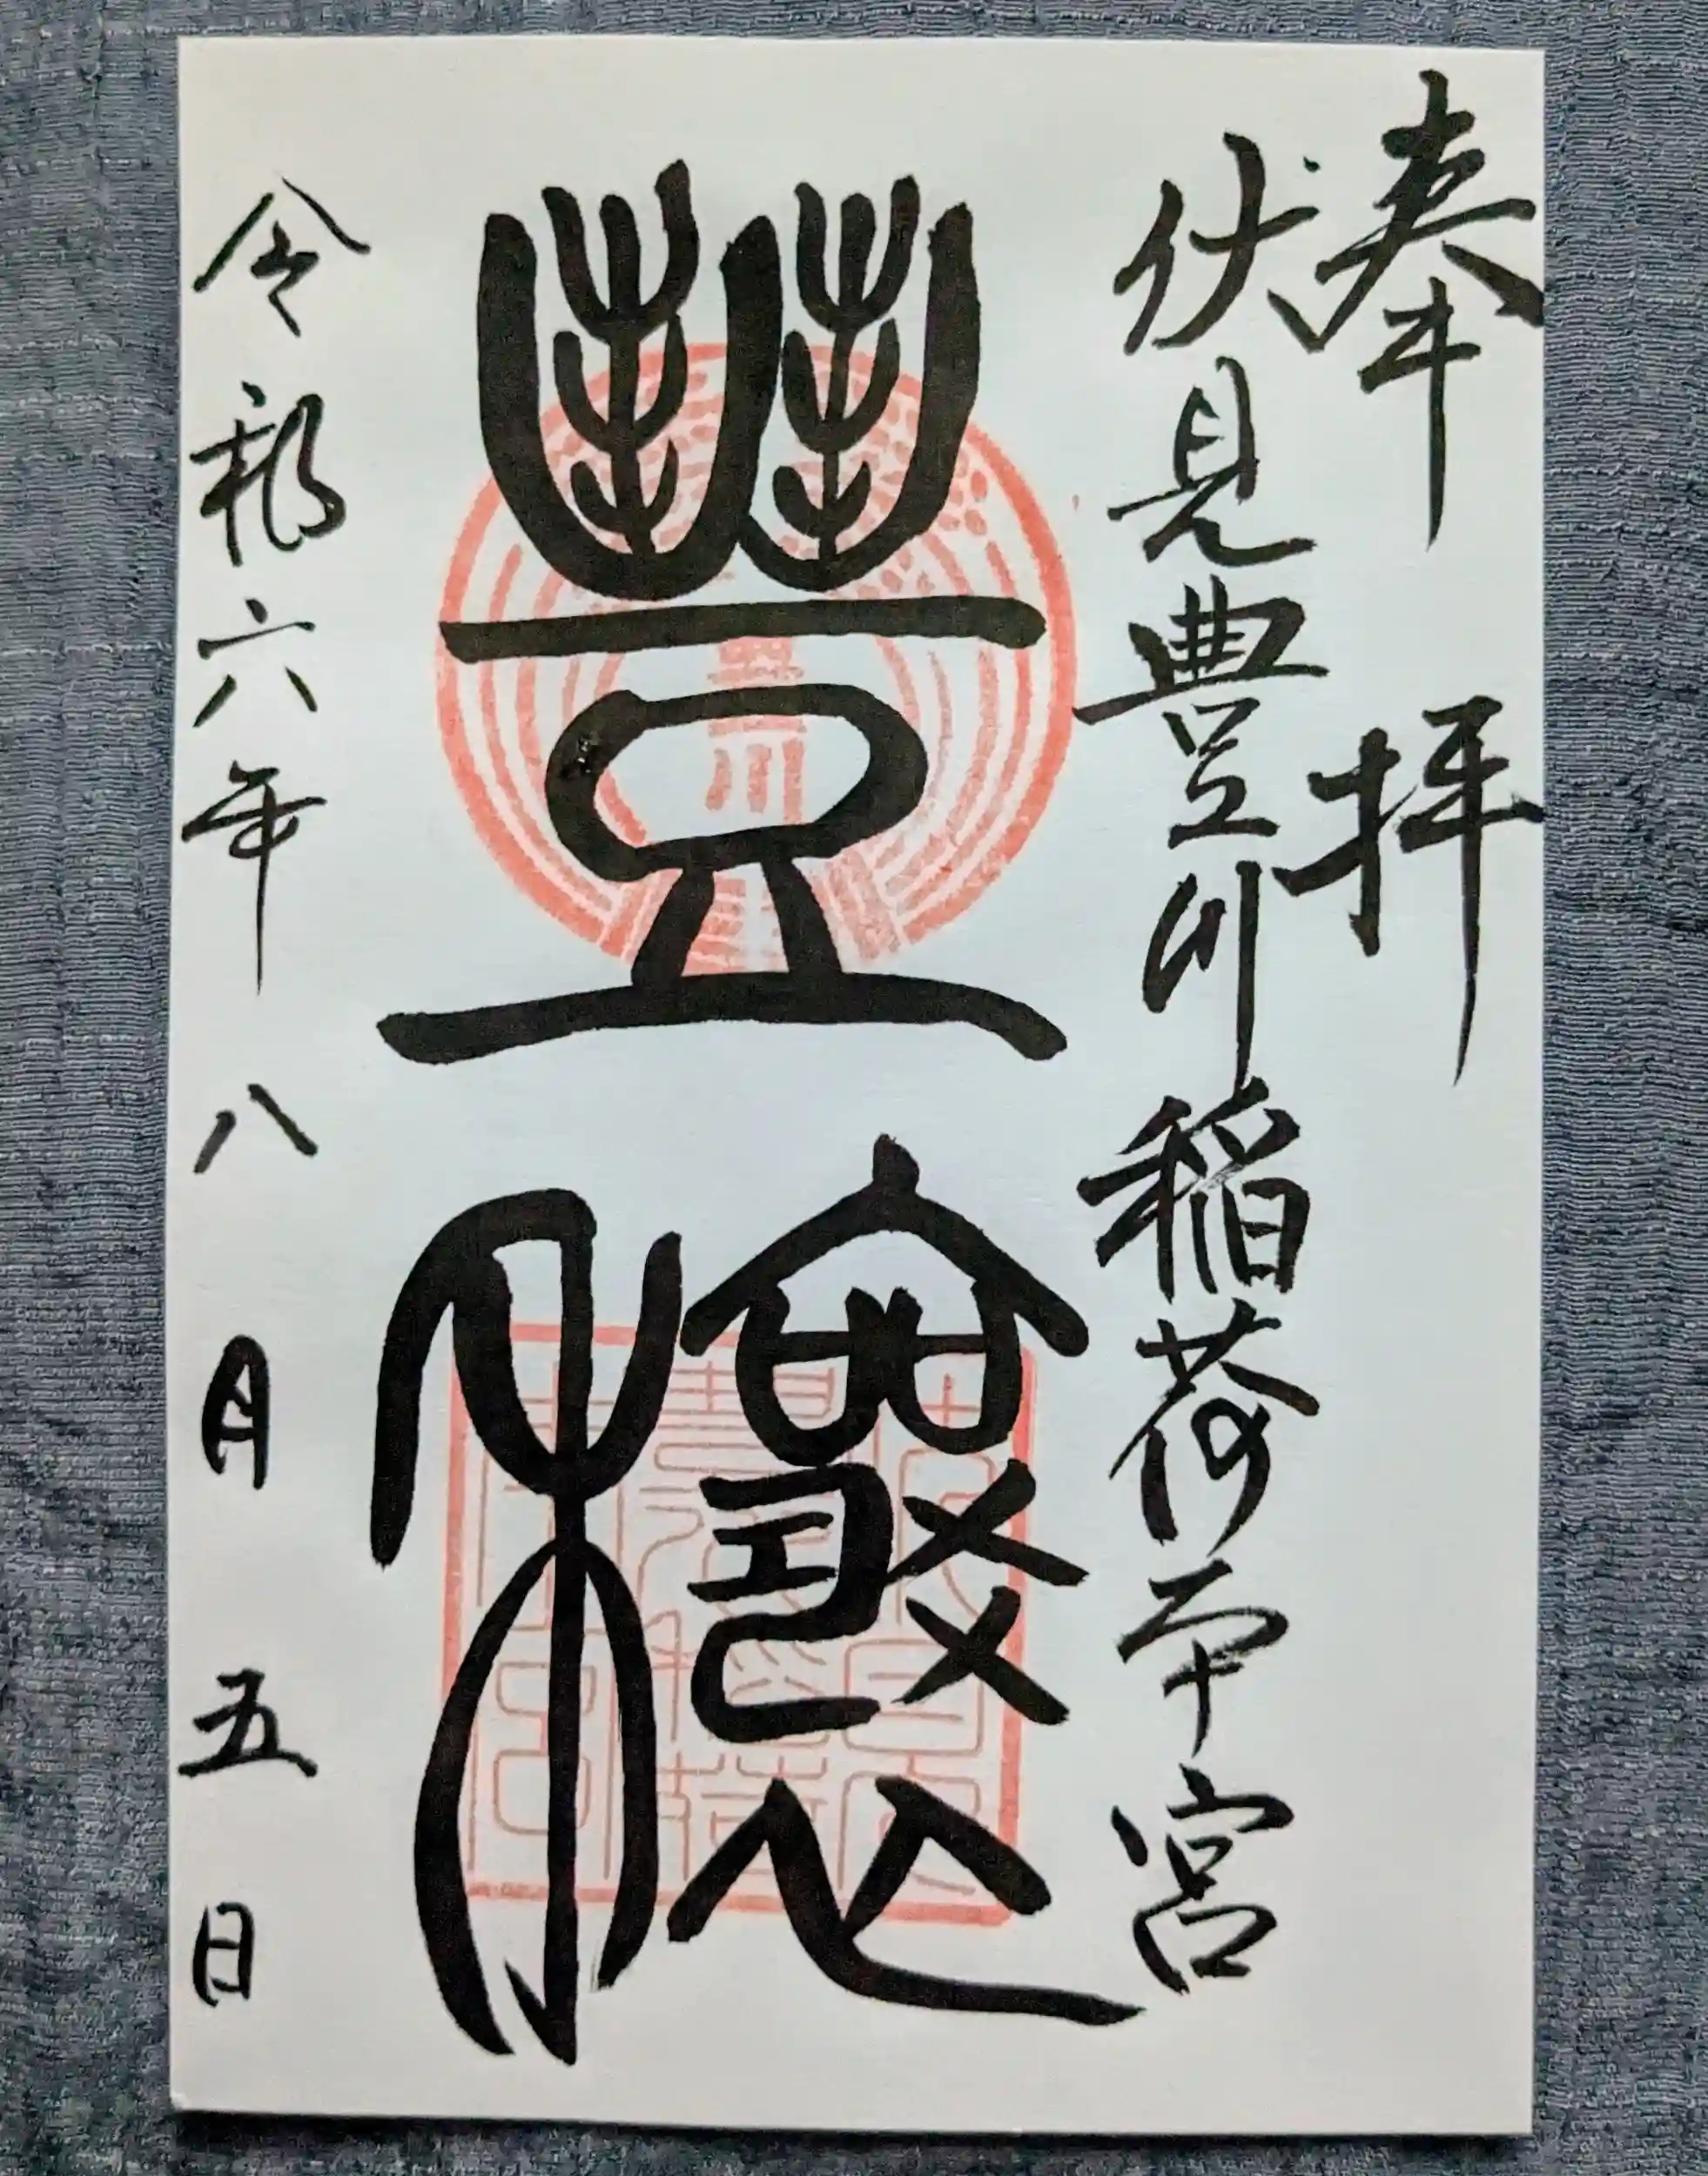 奉拝
伏見豊川稲荷本宮
豊穣
令和六年八月五日
豊川